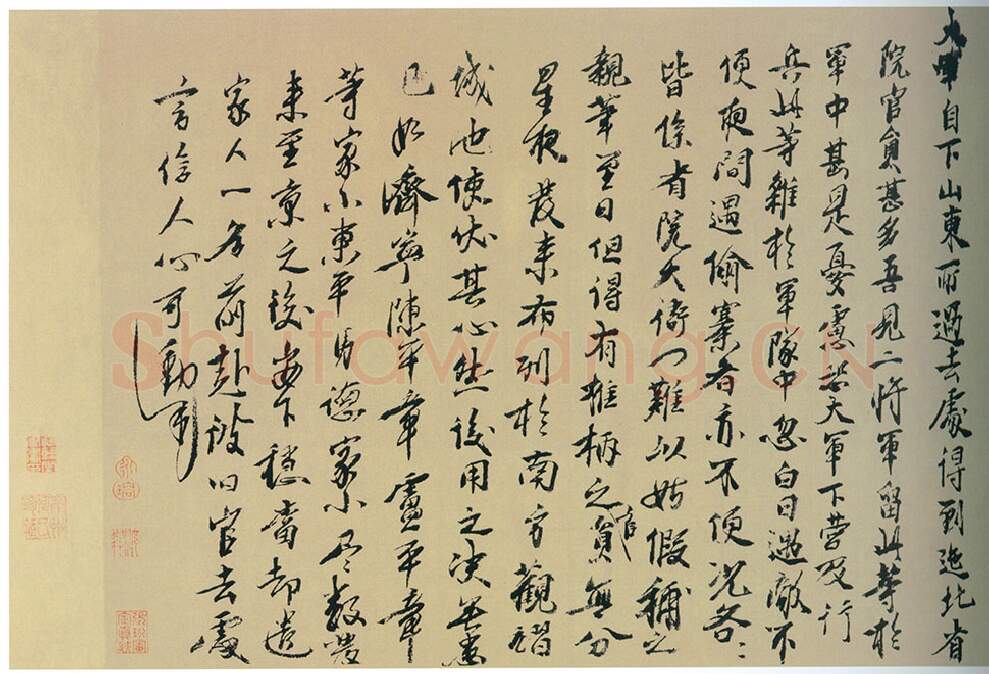 大軍自下山東所過去處得到迤北省
院官員甚多吾見二將軍留此等於
軍中甚是憂慮恐大軍下營及行
兵此等雜於軍隊中忽白日遇敵不
便夜間遇偷寨者亦不便況各〻
皆係省院大衙門難以姑假補之
親筆至日但得有椎柄之官員無分
星夜發來布列於南方觀
城池使伏其心然後用之決無患
已如濟寧陳平章盧平章
等家小東平馬德家小盡數發
來至京之後安下穩當却遣
家人一名前赴彼旧官去處
言信人心可動
Shufawang.CN